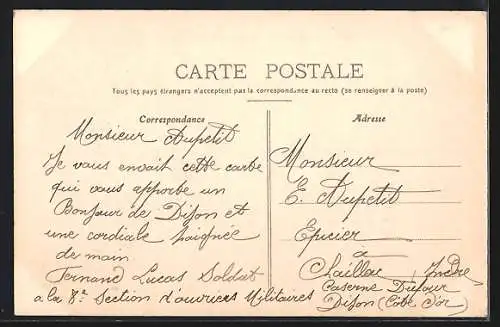 CARTE POSTALE
Tous les pays étrangers n'acceptent pas la correspondance au recto (se renseigner à la poste)
Correspondance
Monsieur Aupetit
Je vous envoit cette carte
qui vous apporte un
Bonjour de Dijon et
une cordiale poignée
de main
Fernand Lucas Soldat
a la 8e Section d'ouvriers Militaires
Caserne Dufour
Dijon (Côte d'or)
Adresse
Monsieur
E. Aupetit
Epicier
à
Chaillac Indre